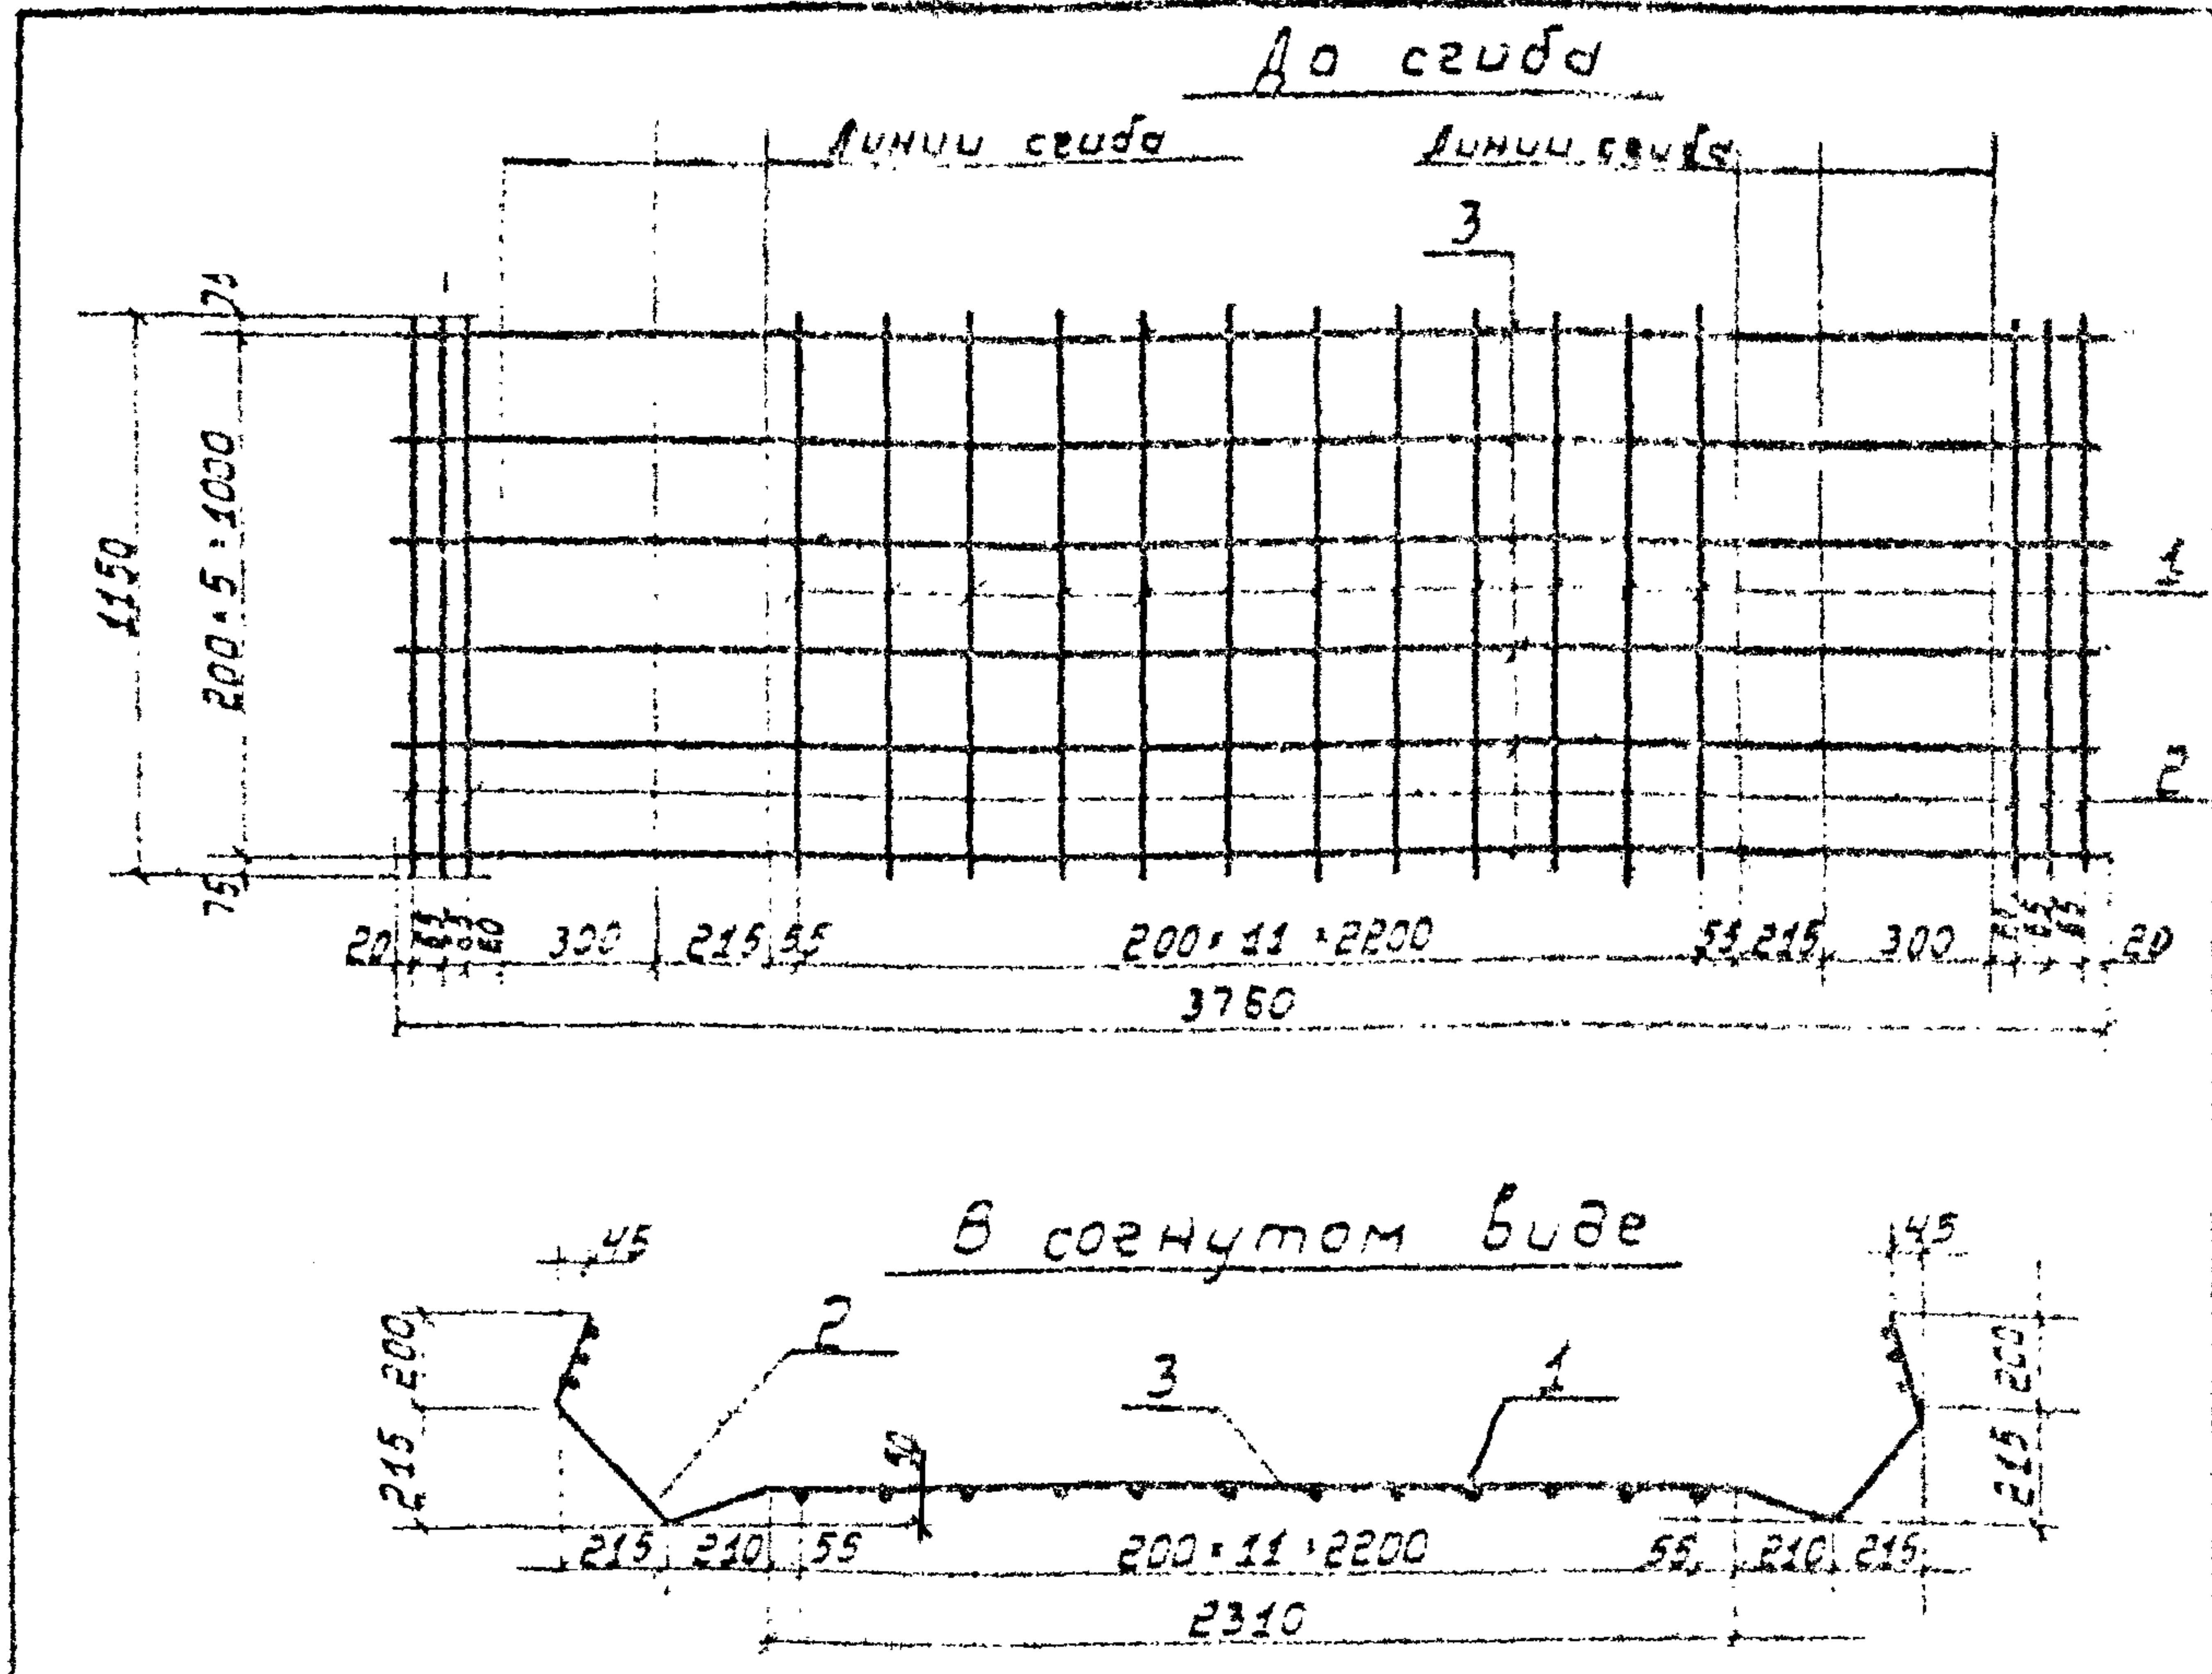 До сгиба
Линии сгиба
Линии сгиба
3
75
1150
200×5=1000
75
1
2
20
300
215
55
200×11=2200
55
215
300
20
3760
В согнутом виде
45
45
200
215
2
3
1
200
215
215
210
55
200×11=2200
55
210
215
2310